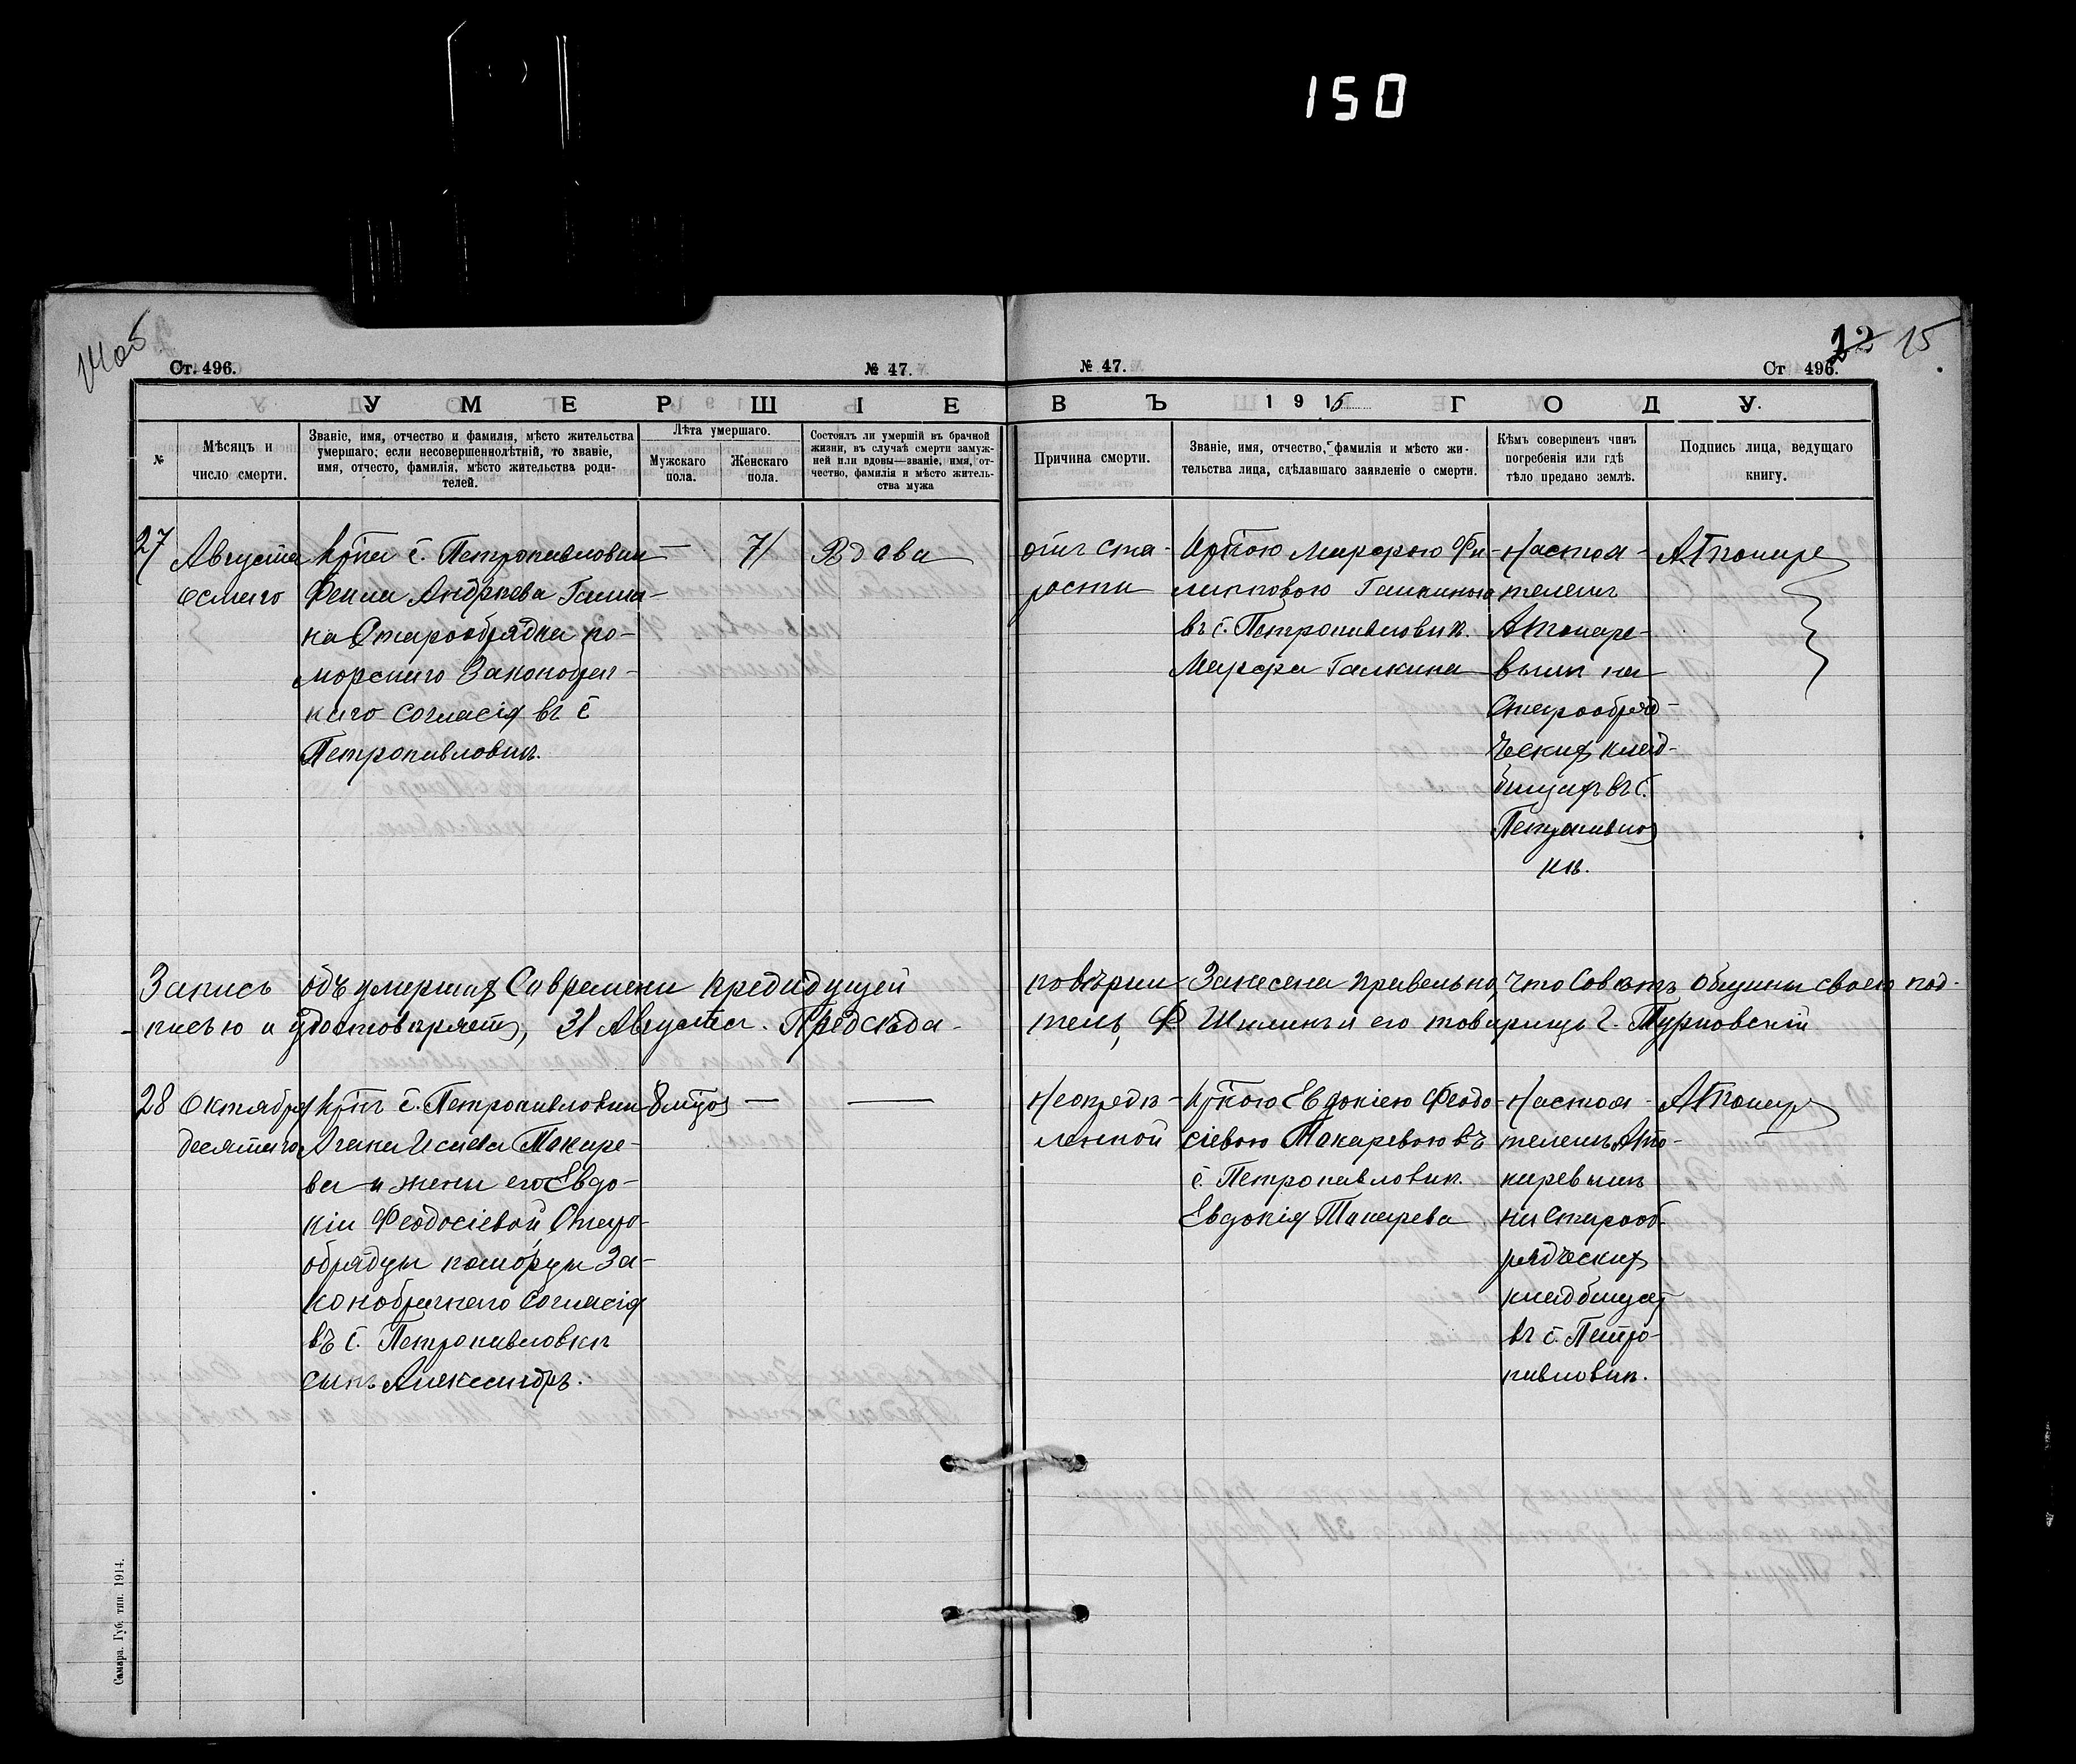 150
Ст. 496.
№ 47.
№ 47.
12 15
Ст 496.
УМЕРШІЕ
ВЪ 1915 ГОДУ.
№
Мѣсяцъ и
число смерти.
Званіе, имя, отчество и фамилія, мѣсто жительства
умершаго; если несовершеннолѣтній, то званіе,
имя, отчесто, фамилія, мѣсто жительства роди-
телей.
Лѣта умершаго.
Мужскаго
пола.
Женскаго
пола.
Состоялъ ли умершій въ брачной
жизни, въ случаѣ смерти замуж-
ней или вдовы—званіе, имя, от-
чество, фамилія и мѣсто житель-
ства мужа
Причина смерти.
Званіе, имя, отчество, фамилія и мѣсто жи-
тельства лица, сдѣлавшаго заявленіе о смерти.
Кѣмъ совершенъ чинъ
погребенія или гдѣ
тѣло предано землѣ.
Подпись лица, ведущаго
книгу.
27
Августа
осмаго
с. Петропавловки
Андреева Галки-
на Старообрядка по-
морскаго Законобрач-
наго согласія въ с
Петропавловкѣ.
—
71
Вдова
отъ ста-
рости
Марфою Фи-
липповою Галкиною
въ с. Петропавловк.
Марфа Галкина
Настоя-
телемъ
на
Старообряд-
ческих клад-
бищахъ въ с.
Петропавлов
кѣ.
Запись объ умерших Со времени предидущей
поверки Занесена правельно, что Советъ общины своею под-
писью и удостоверяет, 31 Августа. Председа-
тель, Ф Шклинъ и его товарищъ Г. Турковскій
28
Октября
десятаго
с. Петропавловки
Исаева Макаре-
ва и жены его Евдо-
кіи Феодосіевой, Старо-
обрядцы поморцы За-
конобрачнаго согласія
въ с. Петропавловки
сынъ Александръ.
—
—
Неопреде-
ленной
Евдокіею Феодо-
сіевою Макаревою въ
с. Петропавловк.
Евдокія Макарева
Настоя-
телемъ
на Старооб-
рядческих
кладбищах
въ с. Петро-
павловк.
Самара. Губ. тип. 1914.